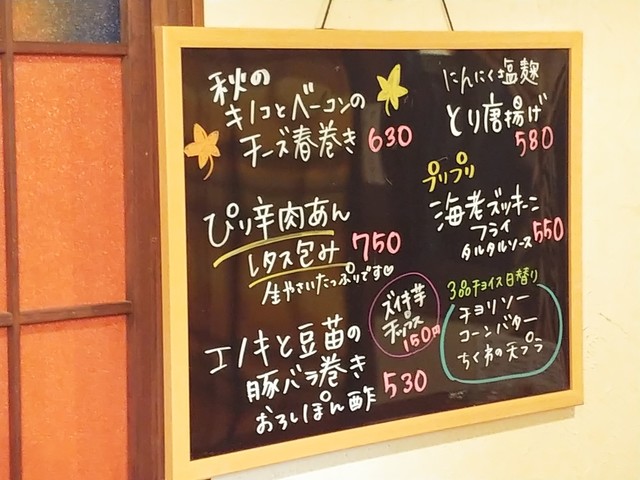 秋の
キノコとベーコンの
チーズ春巻き 630
ぴり辛肉あん
レタス包み 750
生やさいたっぷりです♡
エノキと豆苗の
豚バラ巻き 530
おろしぽん酢
にんにく塩麹
とり唐揚げ
580
プリプリ
海老ズッキーニ
フライ 550
タルタルソース
ズイキ芋
チップス
150円
3品チョイス日替り
チョリソー
コーンバター
ちくわの天プラ